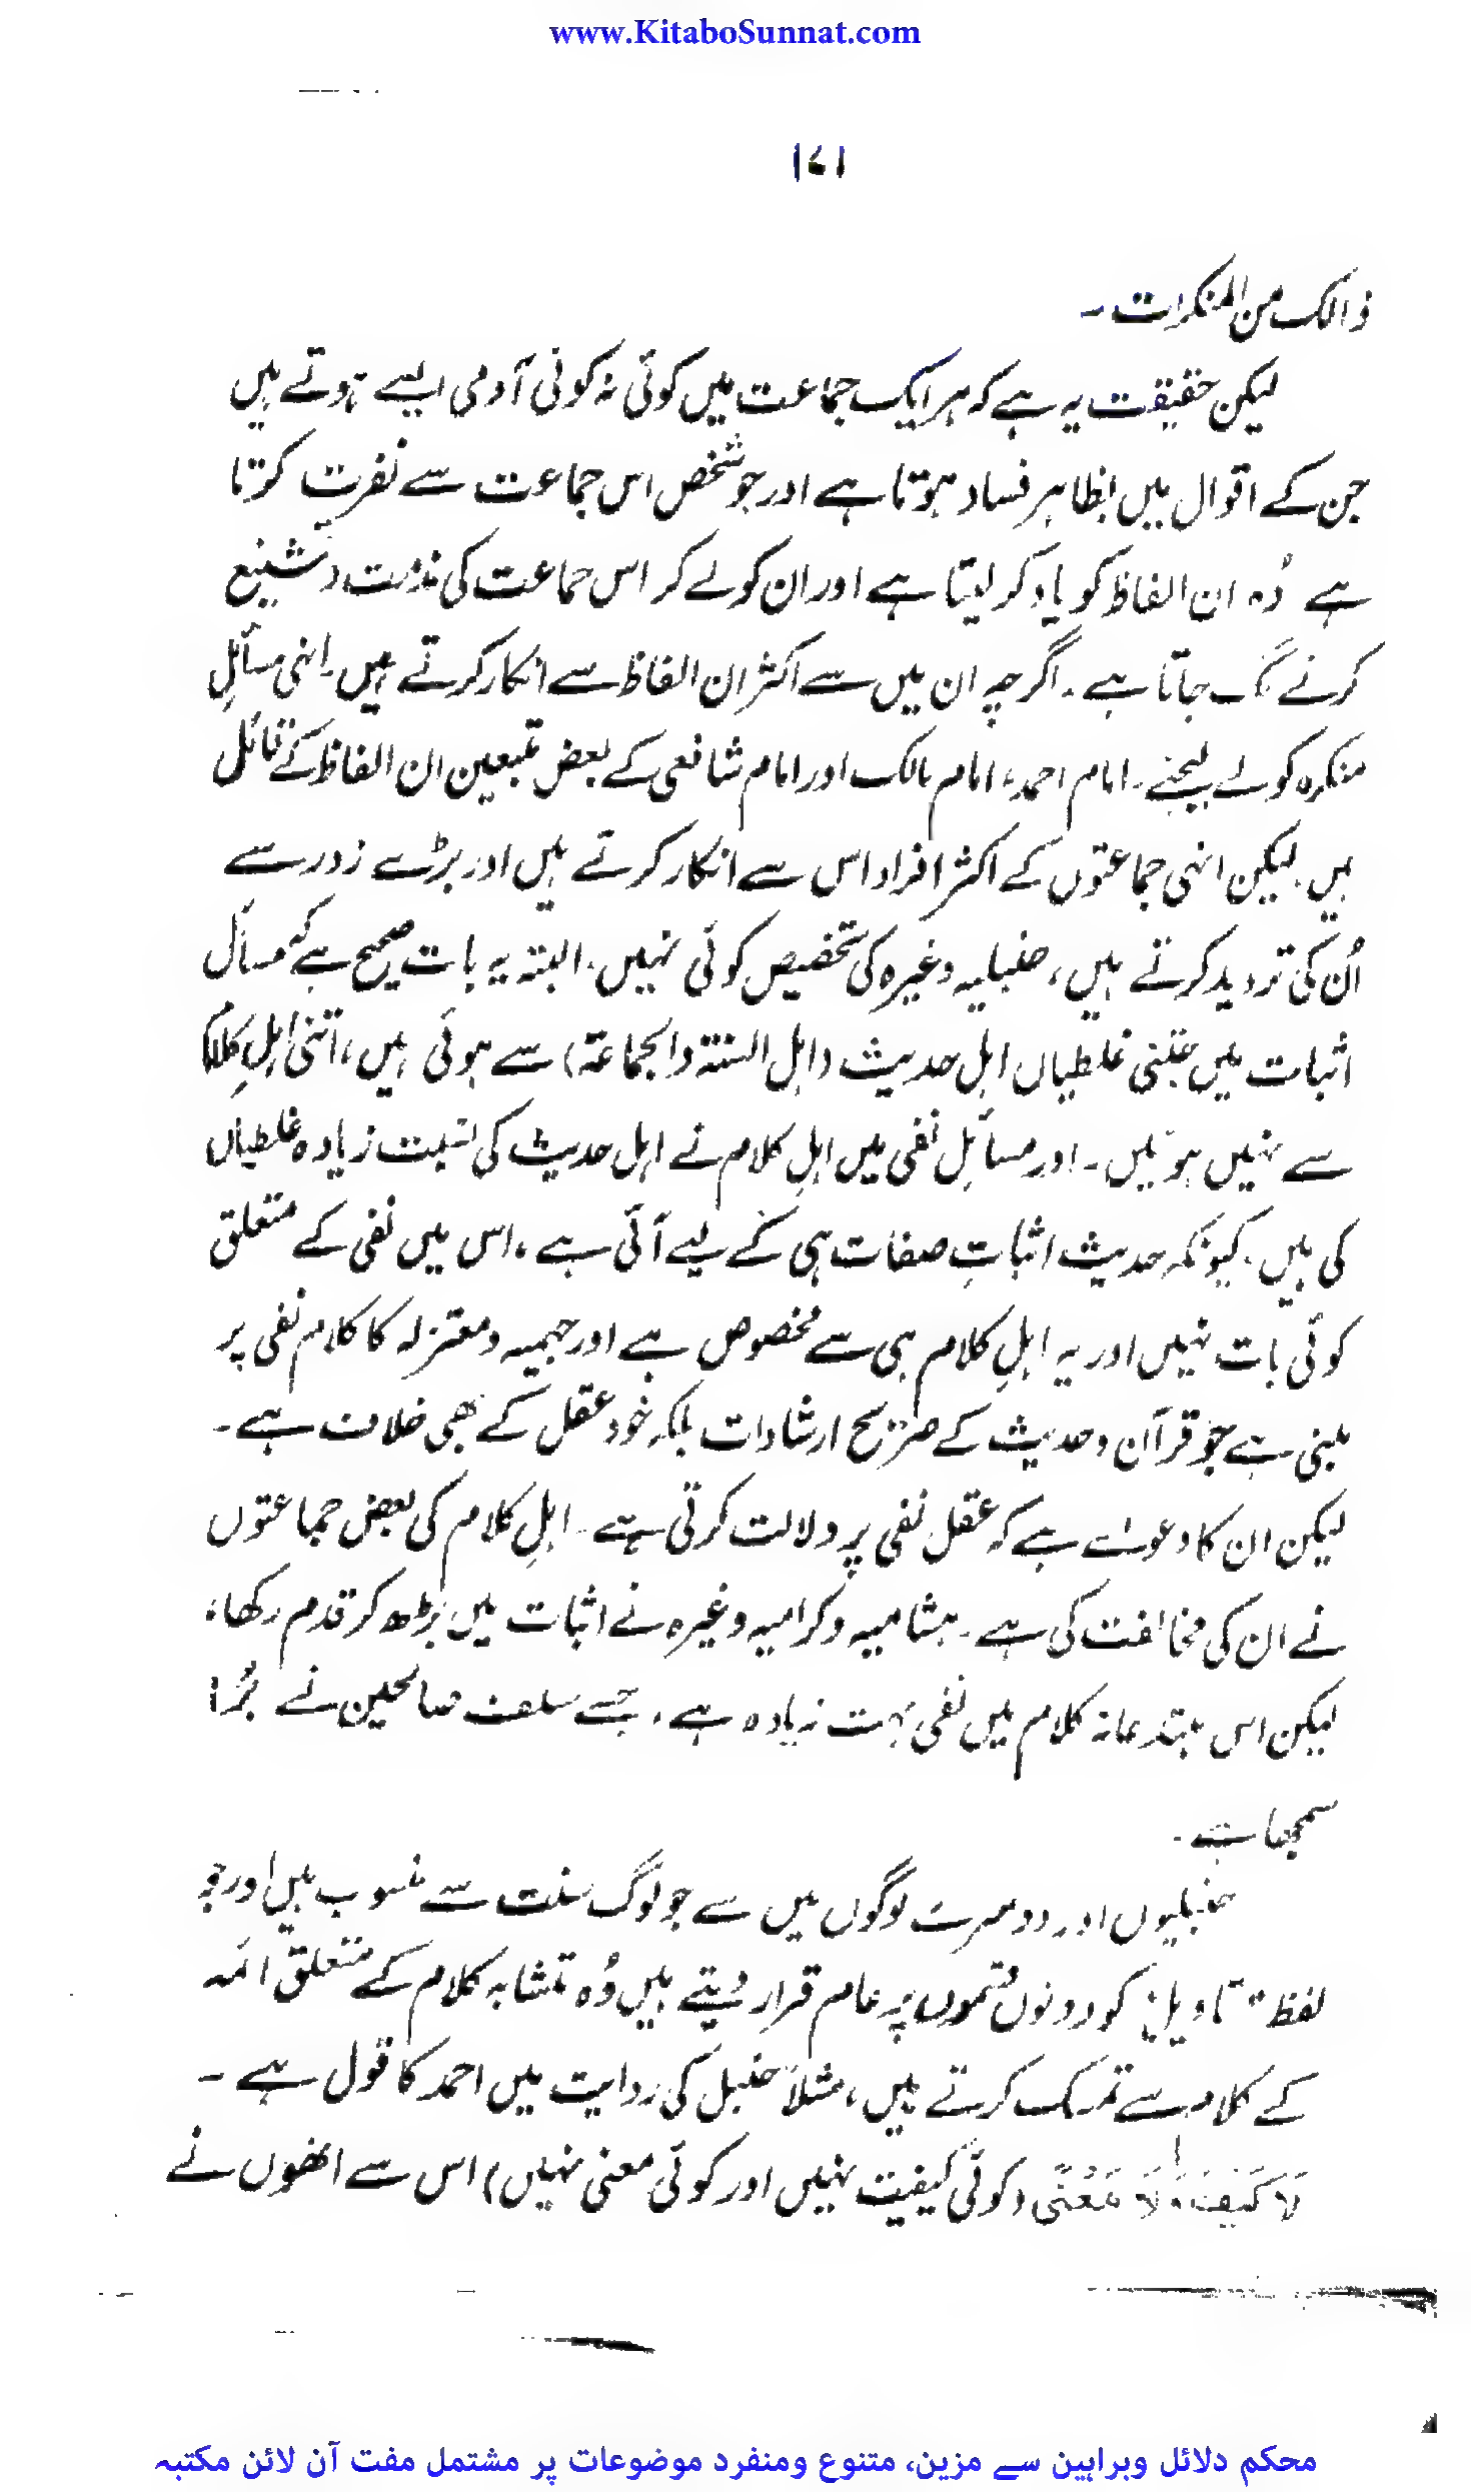 www.KitaboSunnat.com
۱۷۱
ذالک من المنکرات۔
لیکن حقیقت یہ ہے کہ ہر ایک جماعت میں کوئی نہ کوئی آدمی ایسے ہوتے ہیں
جن کے اقوال میں بظاہر فساد ہوتا ہے اور جو شخص اس جماعت سے نفرت کرتا
ہے وُہ ان الفاظ کو یاد کر لیتا ہے اور ان کو لے کر اس جماعت کی مذمت و تشنیع
کرنے لگ جاتا ہے۔ اگرچہ ان میں سے اکثر ان الفاظ سے انکار کرتے ہیں۔ انہی مسائلِ
منکرہ کو لے لیجئے۔ امام احمد، امام مالک اور امام شافعی کے بعض متبعین ان الفاظ کے قائل
ہیں۔ لیکن انہی جماعتوں کے اکثر افراد اس سے انکار کرتے ہیں اور بڑے زور سے
اُن کی تردید کرتے ہیں، حنبلیہ وغیرہ کی تخصیص کوئی نہیں۔ البتہ یہ بات صحیح ہے کہ مسائل
اثبات میں جتنی غلطیاں اہل حدیث (اہل السنتہ والجماعۃ) سے ہوئی ہیں، اتنی اہلِ کلام
سے نہیں ہوئیں۔ اور مسائل نفی میں اہلِ کلام نے اہل حدیث کی نسبت زیادہ غلطیاں
کی ہیں۔ کیونکہ حدیث اثباتِ صفات ہی کے لیے آئی ہے، اس میں نفی کے متعلق
کوئی بات نہیں اور یہ اہلِ کلام ہی سے مخصوص ہے اور جہمیہ و معتزلہ کا کلام نفی پر
مبنی ہے جو قرآن و حدیث کے صریح ارشادات بلکہ خود عقل کے بھی خلاف ہے۔
لیکن ان کا دعوےٰ ہے کہ عقل نفی پر دلالت کرتی ہے۔ اہلِ کلام کی بعض جماعتوں
نے ان کی مخالفت کی ہے۔ ہشامیہ و کرامیہ وغیرہ نے اثبات میں بڑھ کر قدم رکھا،
لیکن اس مبتدعانہ کلام میں نفی بہت زیادہ ہے، جسے سلف صالحین نے بُرا
سمجھا ہے۔
حنبلیوں اور دوسرے لوگوں میں سے جو لوگ سنت سے منسوب ہیں اور جو
لفظ "تاویل" کو دونوں قسموں پر عام قرار دیتے ہیں وُہ متشابہ کلام کے متعلق ائمہ
کے کلام سے تمسک کرتے ہیں، مثلاً حنبل کی روایت میں احمد کا قول ہے۔
لَا كَيْفَ وَلَا مَعْنٰى (کوئی کیفیت نہیں اور کوئی معنی نہیں) اس سے انھوں نے
محکم دلائل وبراہین سے مزین، متنوع ومنفرد موضوعات پر مشتمل مفت آن لائن مکتبہ